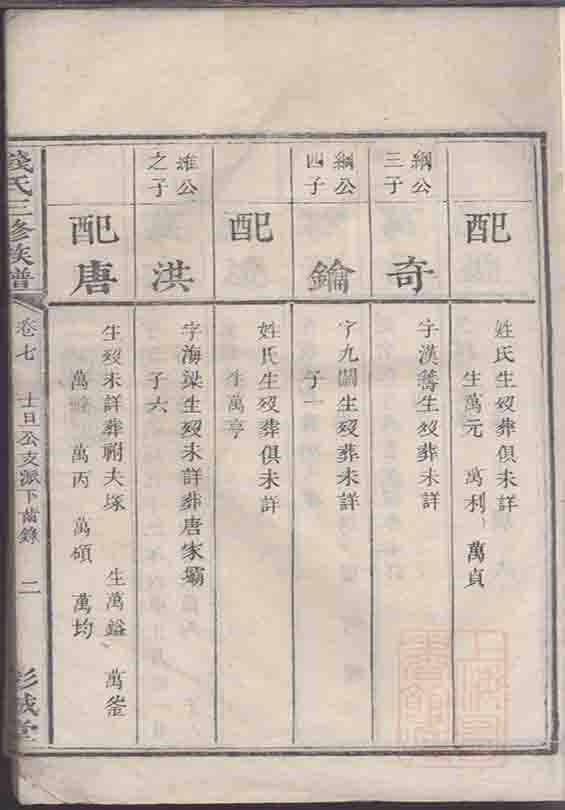 配
姓氏生歿葬俱未詳
生萬元 萬利 萬貞
綱公
三子
奇
字漢鶱生歿葬未詳
綱公
四子
鑰
字九關生歿葬未詳
子一
配
姓氏生歿葬俱未詳
生萬亨
維公
之子
洪
字海梁生歿未詳葬唐家壩
子六
配唐
生歿未詳葬祔大塚 生萬鎰 萬釜
萬鍾 萬丙 萬碩 萬均
錢氏三修族譜
卷七
廿日公支派下齒錄
二
彭城堂